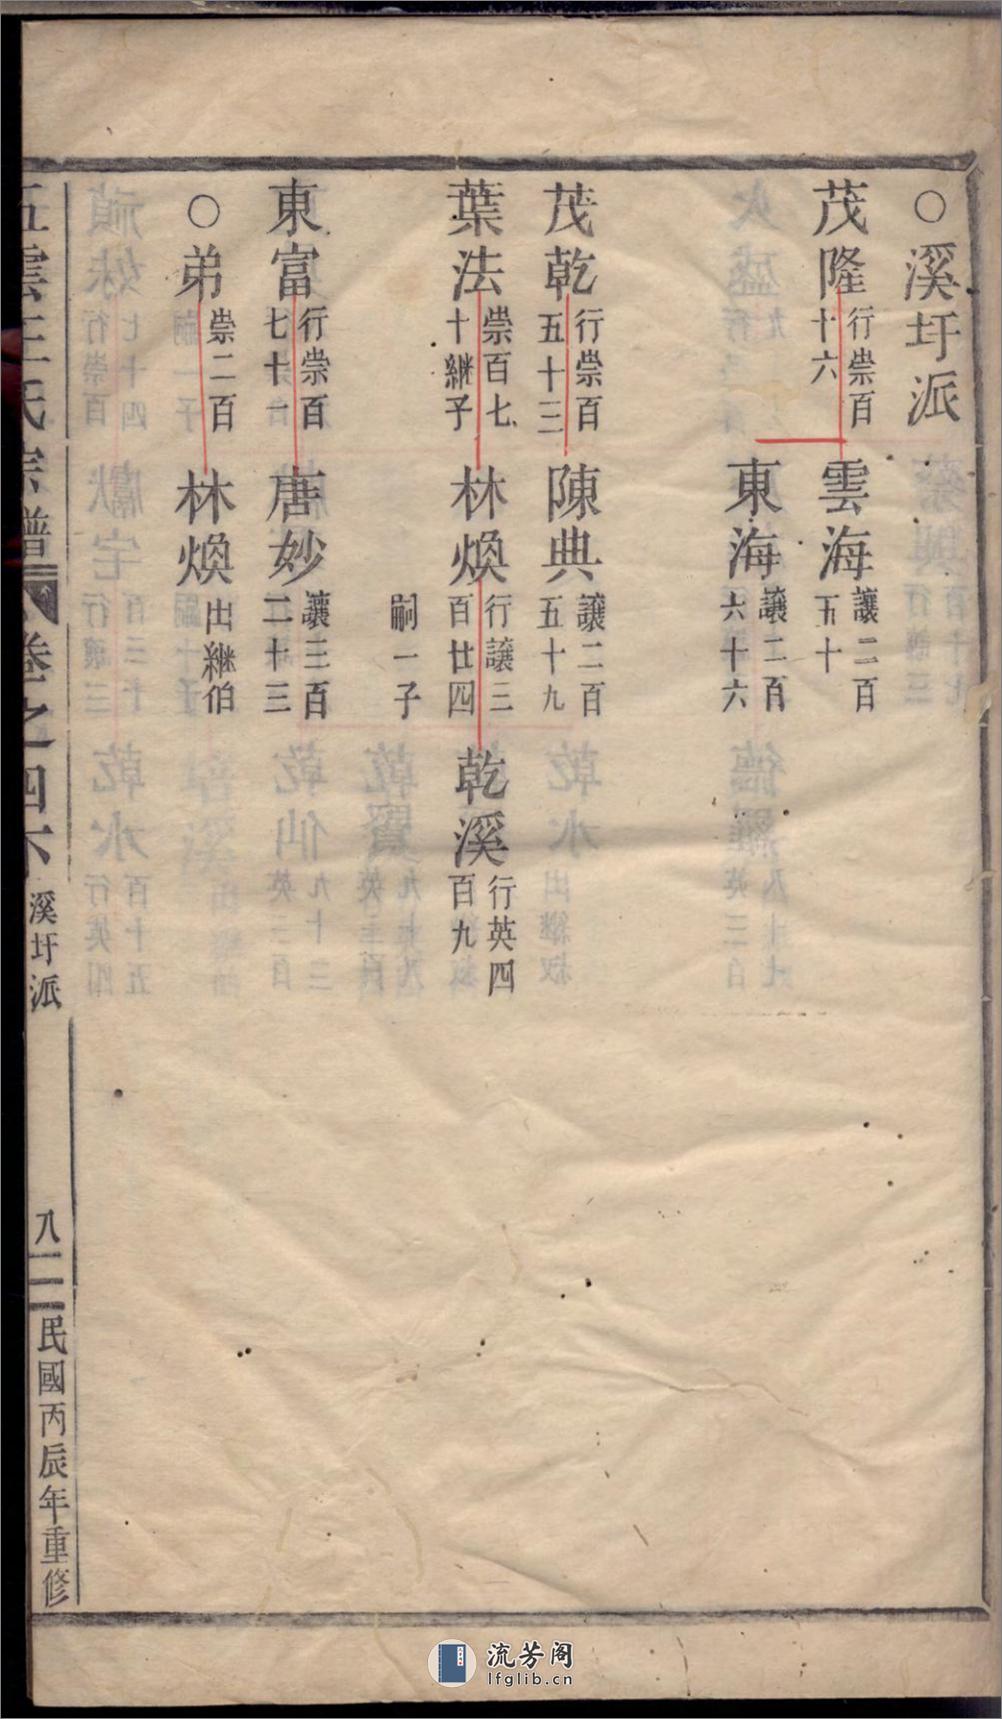 ○溪圩派
茂隆 行崇百十六
雲海 讓二百五十
東海 讓二百六十六
茂乾 行崇百五十三
陳典 讓二百五十九
葉法 崇百七十繼子
林煥 行讓三百廿四
嗣一子
乾溪 行英四百九
東富 行崇百七十一
唐妙 讓三百二十三
○弟 崇二百
林煥 出繼伯
五雲王氏宗譜 卷之四下 溪圩派 八二 民國丙辰年重修
流芳阁
lfglib.cn